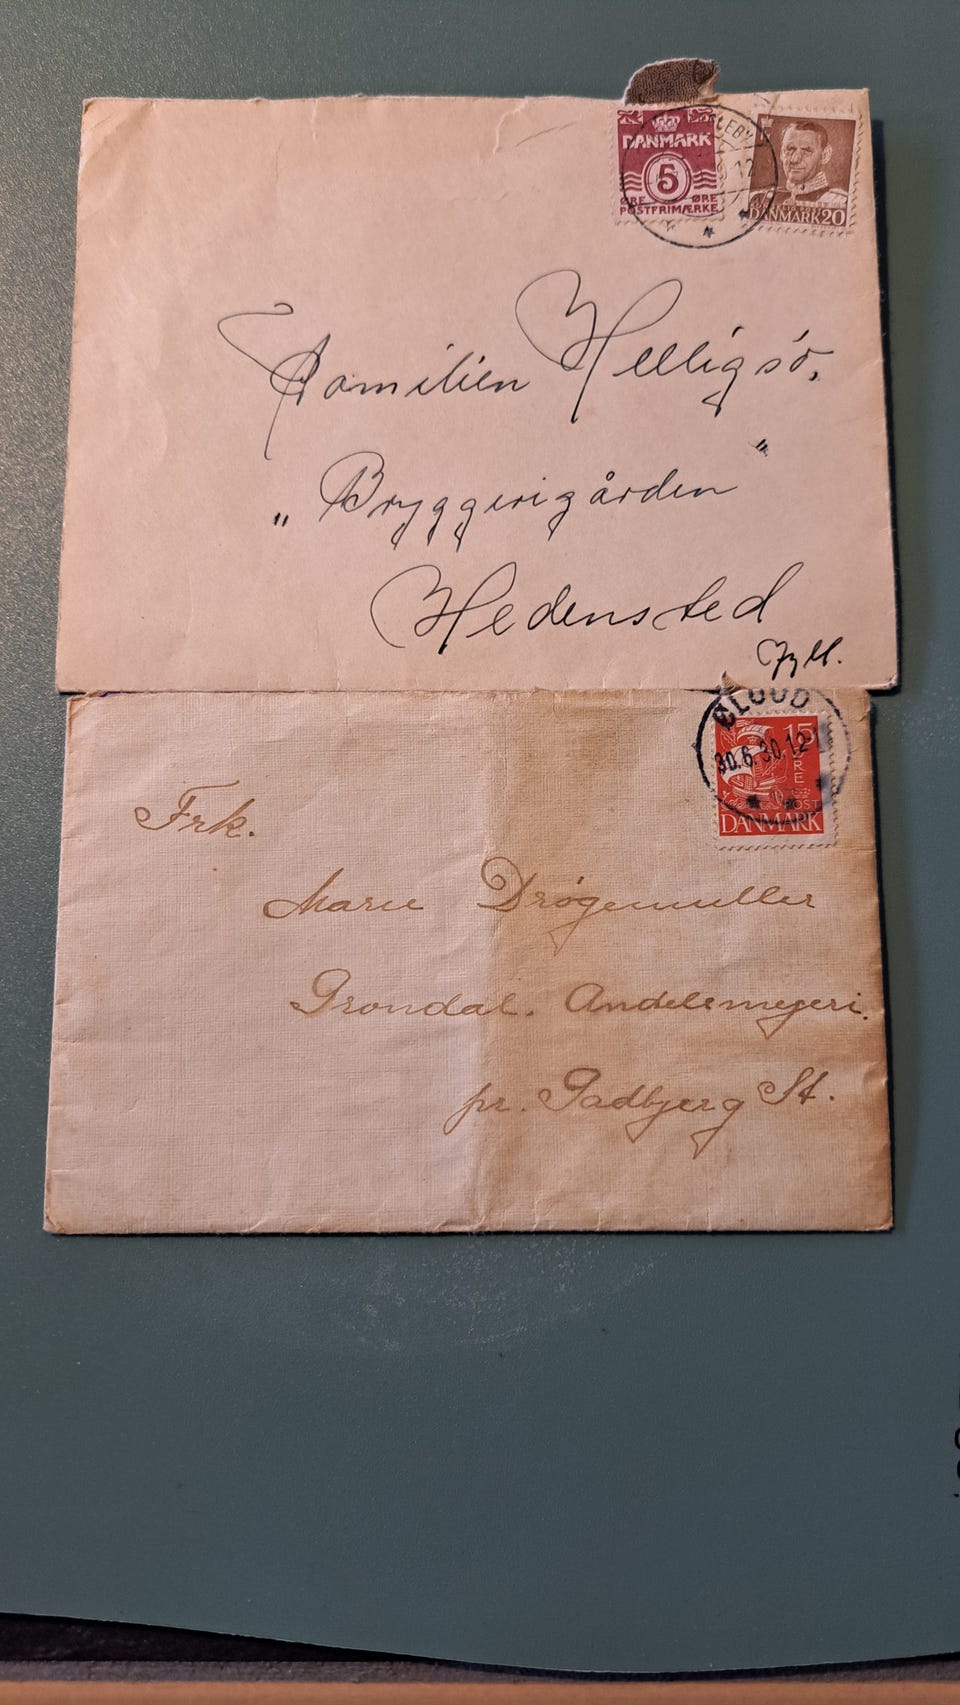 DANMARK
5
ØRE ØRE
POSTFRIMÆRKE
DANMARK 20
12
Familien Helligsø,
„Bryggerigården"
Hedensted
Jyll.
ØLGOD
30.6.30.12-1
15
ØRE
POST
DANMARK
Frk.
Marie Drøgemuller
Grondal. Andelsmejeri.
pr. Gadbjerg St.